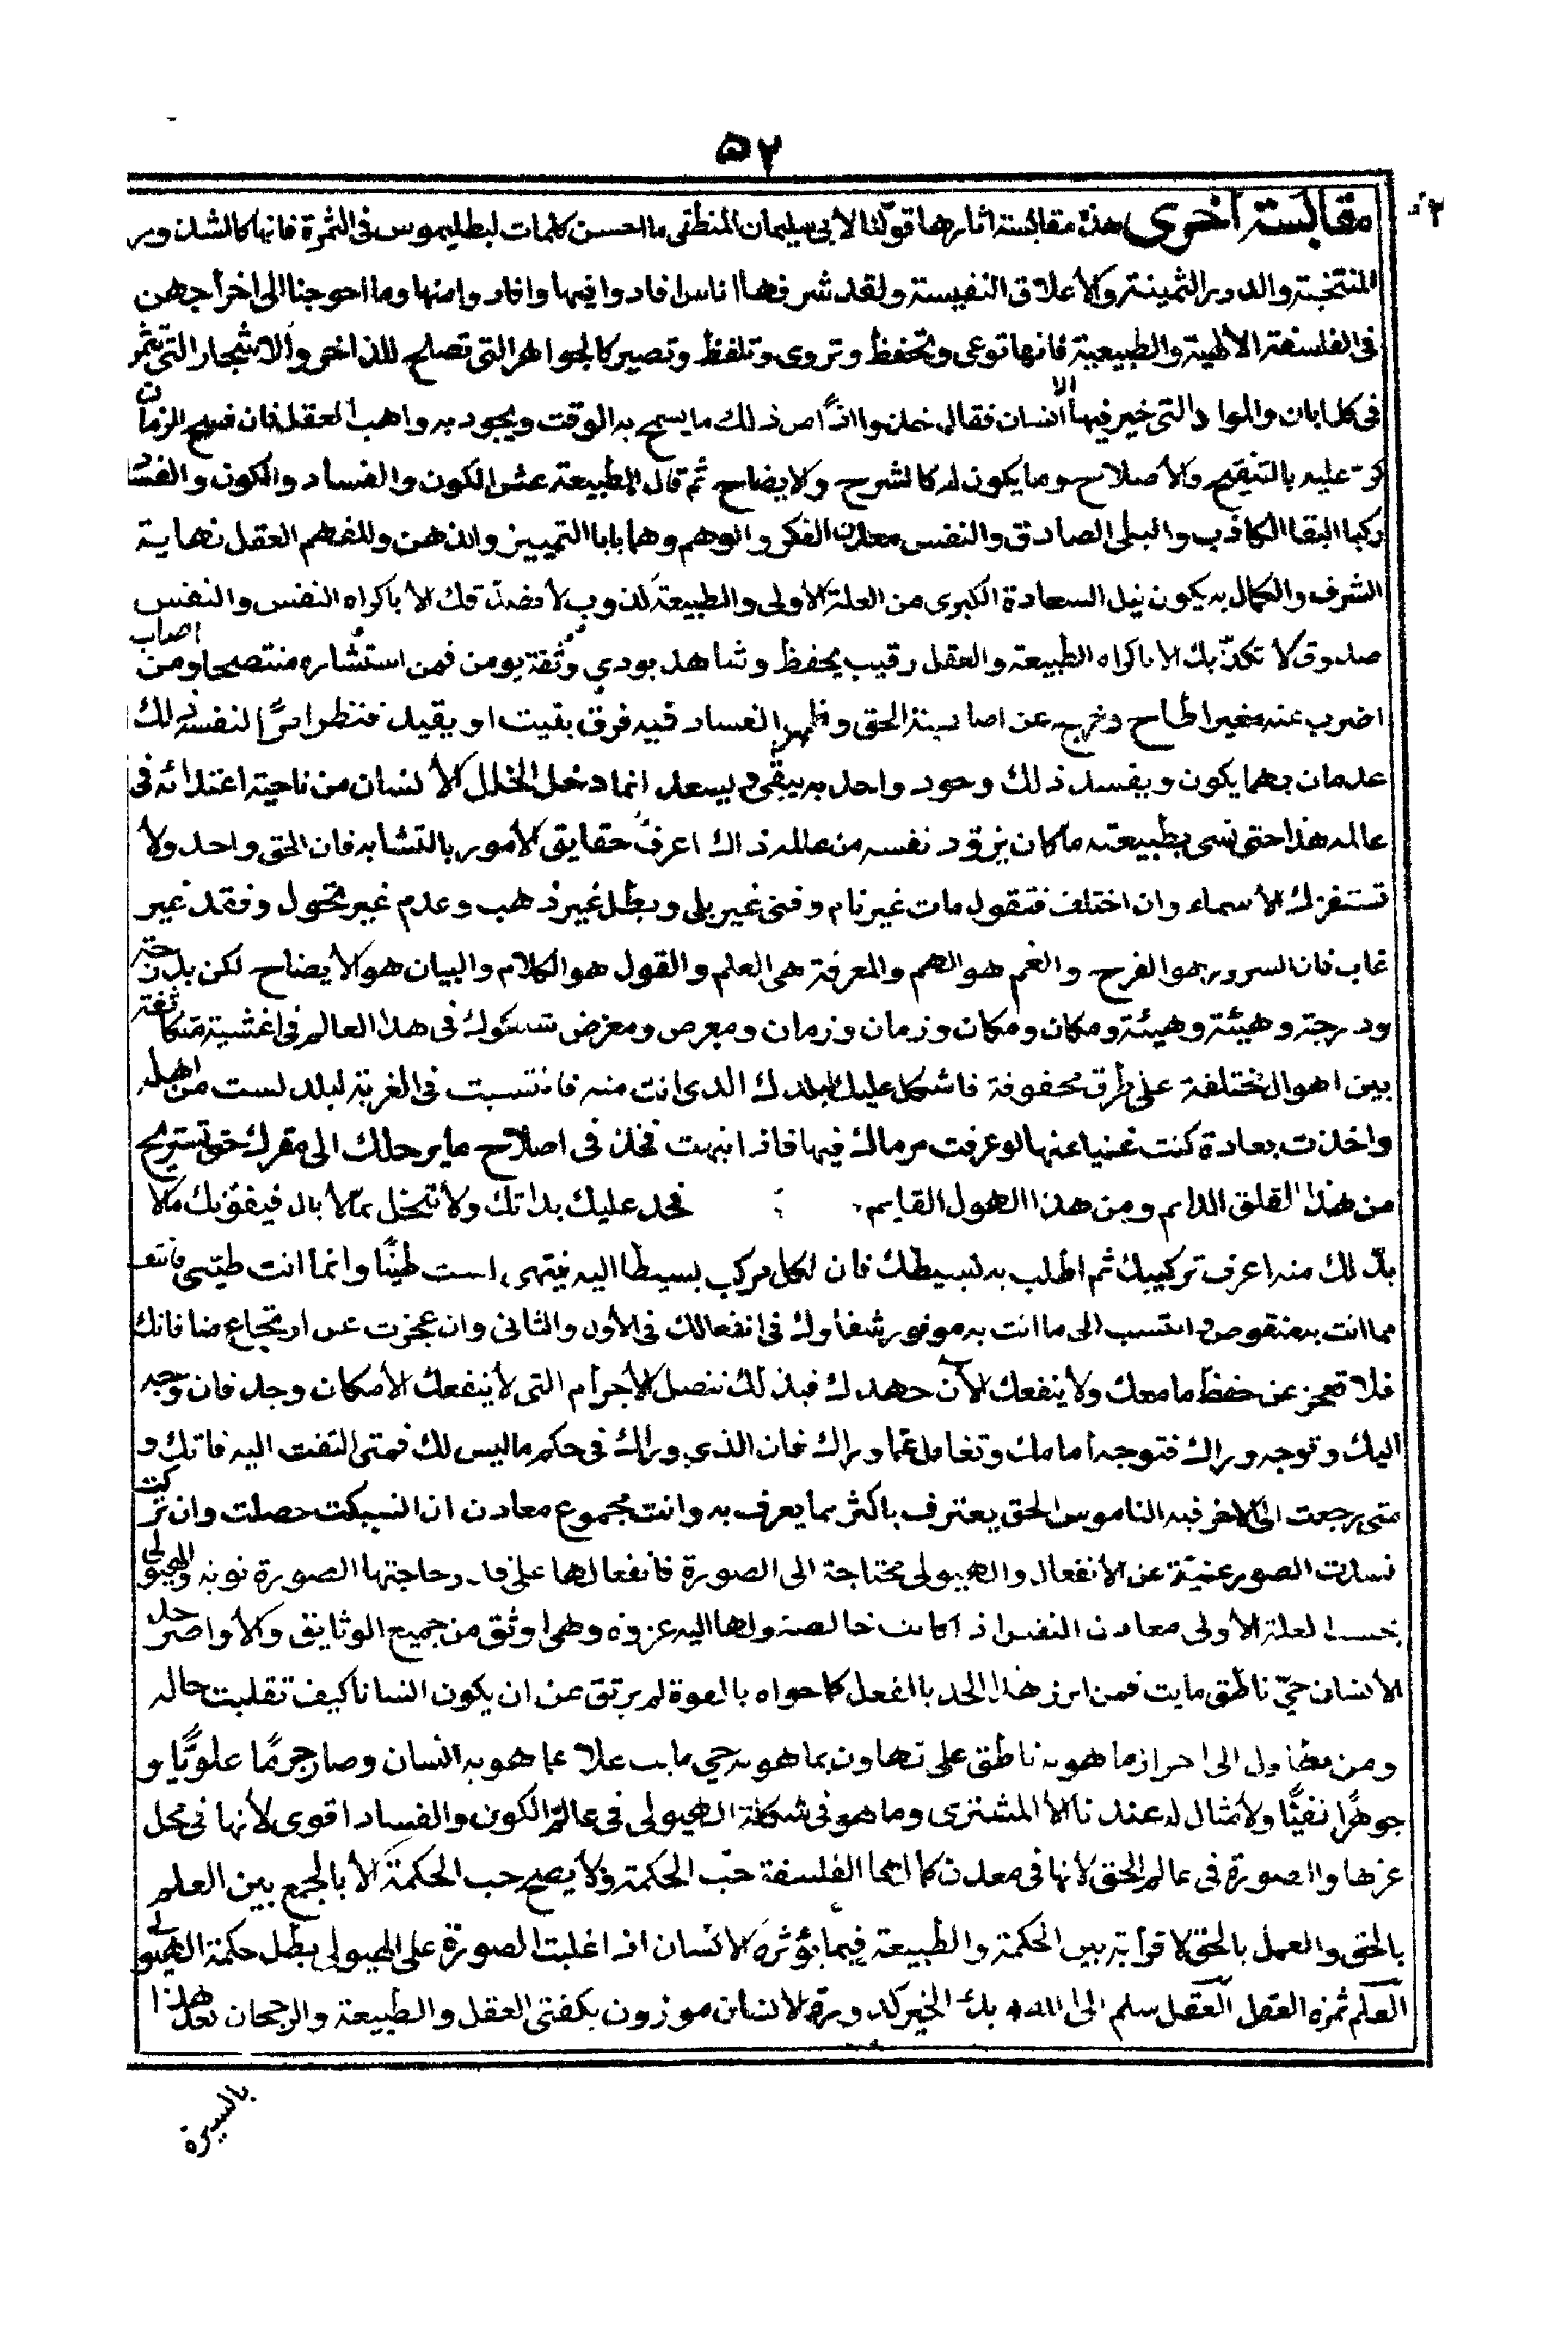 ٥٢
مقابسة اخرى هذه مقابسة اثارها قولنا لابى سليمان المنطقى ما احسن كلمات لبطليموس فى الثمرة فانها كالشذور
المنتخبة والدور الثمينة والأعلاق النفيسة ولقد شرفها اناس افادوا فيها وافادوا منها وما احوجنا الى اخراجهن
فى الفلسفة الالهية والطبيعية فانها توعى وتحفظ وتروى وتلفظ وتصير كالجواهر التى تصلح للذاخر والاشجار التى تثمر
فى كل ابان والمواد التى خير فيها الانسان فقال خذوا اذًا من ذلك ما يسمح به الوقت ويجود به واهب العقل فان فسح الزمان
كرت عليه بالتنقيح والأصلاح وما يكون له كالشرح والايضاح ثم قال الطبيعة عش الكون والفساد والكون والفساد
ركبا البقا الكاذب والبلى الصادق والنفس معدن الفكر والوهم وهما بابا التمييز والذهن والفهم العقل نهاية
الشرف والكمال به يكون نيل السعادة الكبرى من العلة الأولى والطبيعة كذوب لا تصدقك الا باكراه النفس والنفس
صدوق لا تكذبك الا باكراه الطبيعة والعقل رقيب يحفظ وشاهد يودي وثقة يومن فمن استشاره منتصحا اصاب ومن
اضرب عنه مغيرا طاح وخرج عن اصابة الحق وظهر الفساد فيه فرق بقيت او يقيد النفس لك
عدمان بهما يكون ويفسد ذلك وجود واحد به يبقى ويسعد انما دخل الخلل الأنسان من ناحية اغتذائه فى
عالمه هذا حتى نسى بطبيعته ما كان يزود نفسه من عالمه ذاك اعرف حقايق الأمور بالتشابه فان الحق واحد ولا
تستفزك الأسماء وان اختلف فتقول مات غير نام وفنى غير بلى وبطل غير ذهب وعدم غير تحول وفقد غير
غاب فان السرور هو الفرح والغم هو الهم والمعرفة هى العلم والقول هو الكلام والبيان هو الأيضاح لكن بدرجة
ودرجة وهيئة وهيئة ومكان ومكان وزمان وزمان ومعرض ومعرض سلوك فى هذا العالم فى اغشية متكاثفة
بين اهوال مختلفة على طرق محفوفة فاشكل عليك بلدك الذى انت منه فانتسبت فى الغربة لبلد لست من اهله
واخذت بعادة كنت غنيا عنها لو عرفت مرماك فيها فاذا انبهت فخذ فى اصلاح ما يرحلك الى مقرك حتى تستريح
من هذا القلق الدايم ومن هذا الهول القايم فجد عليك بذاتك ولا تبخل بمالا بال فيفوتك مالا
بدّ لك منه اعرف تركيبك ثم اطلب به بسيطك فان لكل مركب بسيطا اليه ينتهى لست طينًا وانما انت طينى فانتف
مما انت به منقوص وانتسب الى ما انت به موفور شغلوك فى انفعالك فى الأول والثانى وان عجزت عن ارتجاع ضا فانك
فلا تعجز عن حفظ ما معك ولا ينفعك الآن جهدك فبذلك ننصل الأجرام التى لا ينفعك الأمكان وجد فان وجه
اليك وتوجه وراك فتوجه أمامك وتغافل عما وراك فان الذى وراك فى حكم ما ليس لك فمتى التفت اليه فاتك و
متى رجعت الى الاخر فبه الناموس الحق يعترف باكثر مما يعرف به وانت مجموع معادن ان انسبكت حصلت وان تركت
فسدت الصور غنيّة عن الأنفعال والهيولى محتاجة الى الصورة فانفعالها على قدر حاجتها الصورة والهيولى
العلة الأولى معادن النفس اذ اكانت خالصة ولها اليه عزوة وهى اوثق من جميع الوثايق والأواصر حد
الأنسان حيّ ناطق مايت فمن ابرز هذا الحد بالفعل كما حواه بالقوة لم يرتق عن ان يكون انسانا كيف تقلبت حاله
ومن تطاول الى احراز ما هو به ناطق على تهاون بما هو به حي مايت علا عما هو به انسان وصار جرمًا علويًّا و
جوهرًا نقيًّا ولا مثال له عندنا الا المشترى وما هو فى شكله الهيولى فى عالم الكون والفساد اقوى لأنها فى محل
عزها والصورة فى عالم الحق لانها فى معدن كمالها الفلسفة حبّ الحكمة ولا يصح حب الحكمة الا بالجمع بين العلم
بالحق والعمل بالحق لا قرابة بين الحكمة والطبيعة فيما يؤثره الانسان اذا غلبت الصورة على الهيولى بطل حكمة الهيولى
العلم ثمرة العقل العقل سلم الى الله بك الخير كدورة الانسان موزون بكفتى العقل والطبيعة والرجحان بعد هذا
بالسيرة